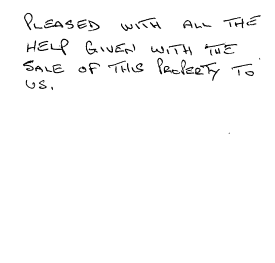 PLEASED WITH ALL THE
HELP GIVEN WITH THE
SALE OF THIS PROPERTY TO
US.